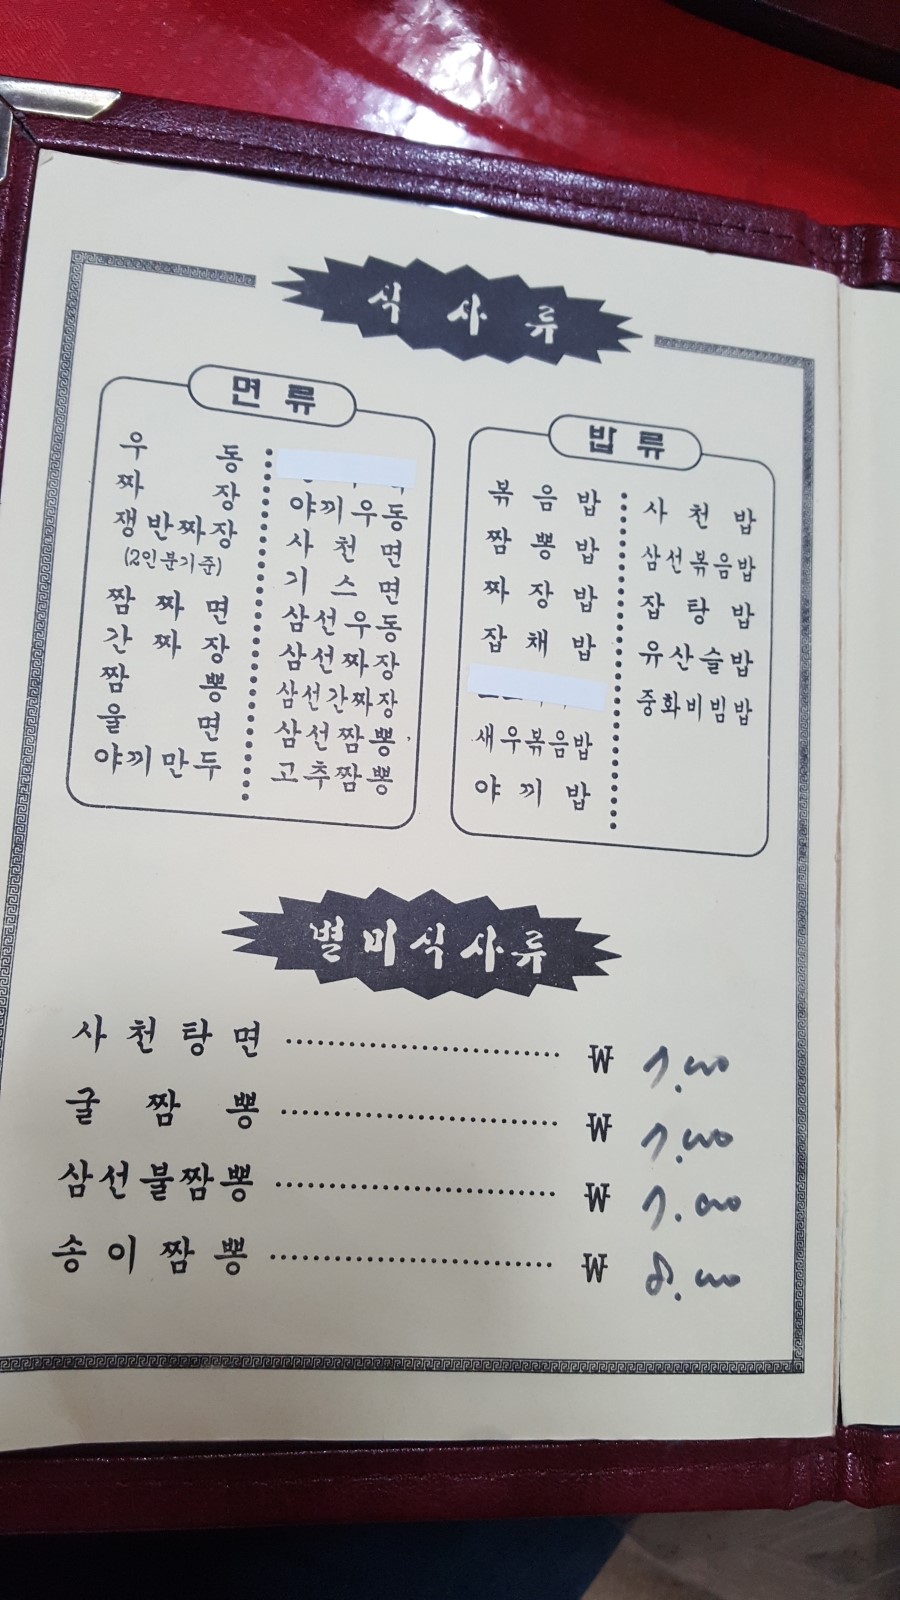 식사류
면류
우동
짜장
쟁반짜장
(2인분기준)
짬짜면
간짜장
짬뽕
울면
야끼만두
야끼우동
사천면
기스면
삼선우동
삼선짜장
삼선간짜장
삼선짬뽕
고추짬뽕
밥류
볶음밥
짬뽕밥
짜장밥
잡채밥
새우볶음밥
야끼밥
사천밥
삼선볶음밥
잡탕밥
유산슬밥
중화비빔밥
별미식사류
사천탕면 ₩ 7.000
굴짬뽕 ₩ 7.000
삼선불짬뽕 ₩ 7.000
송이짬뽕 ₩ 8.000